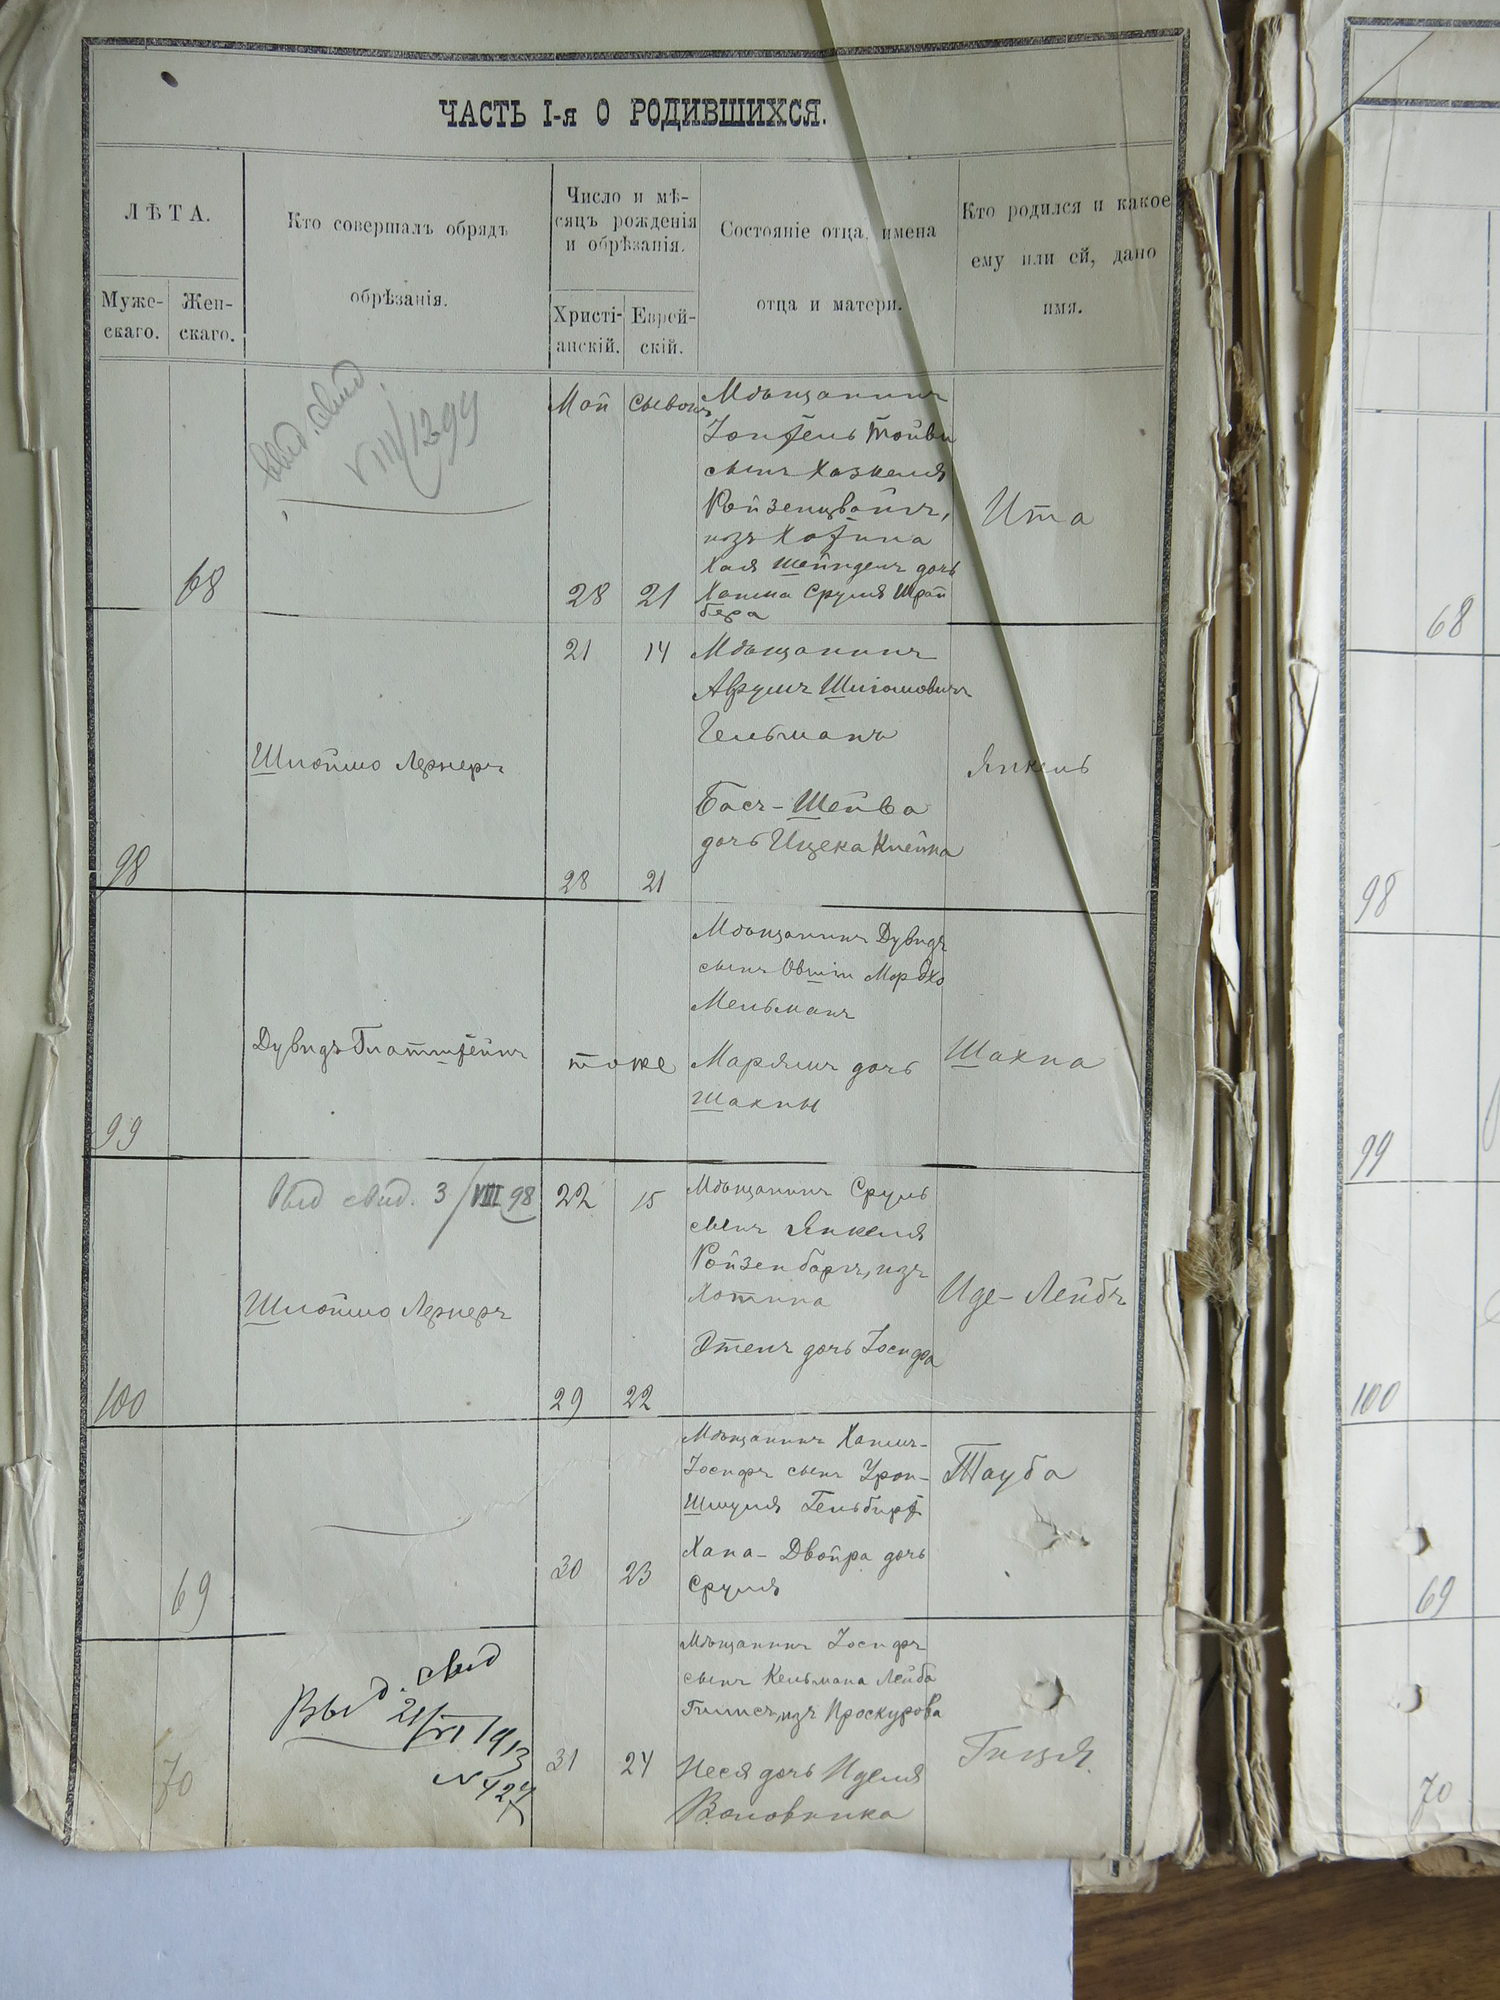 ЧАСТЬ I-я О РОДИВШИХСЯ.
ЛѢТА.
Муже-
скаго.
Жен-
скаго.
Кто совершалъ обрядъ
обрѣзанія.
Число и мѣ-
сяцъ рожденія
и обрѣзанія.
Христі-
анскій.
Еврей-
скій.
Состояніе отца, имена
отца и матери.
Кто родился и какое
ему или ей, дано
имя.
68
выд. свид.
VIII/1899
Май
28
Сывонъ
21
Мѣщанинъ
Тойви
сынъ Хаскеля
Ройзенцвайгъ,
изъ Хотина
Хая Шейндель дочь
Хаима Сруля Шрай
бера
Ита
98
Шлоймо Лернеръ
21
28
14
21
Мѣщанинъ
Аврумъ
Гельманъ
Бася-Шейва
дочь Ицека
Янкель
99
Дувидъ Глатштейнъ
тоже
Мѣщанинъ Дувидъ
сынъ Овшіи Мордко
Мельманъ
Марямъ дочь
Шахны
Шахна
100
Выд свид. 3/VIII 98
Шлоймо Лернеръ
22
29
15
22
Мѣщанинъ Сруль
сынъ Янкеля
Ройзенбаргъ, изъ
Хотина
дочь Іосифа
Иде-Лейбъ
69
30
23
Мѣщанинъ Хаимъ-
Іосифъ сынъ Урон-
Шмуля
Хана-Двойра дочь
Сруля
Тауба
70
Выд. свид
21/VI 1913
N 424
31
24
Мѣщанинъ Іосифъ
сынъ Кельмана Лейба
изъ Проскурова
Неся дочь Иделя
Воловника
Гиця.
68
98
99
100
69
70